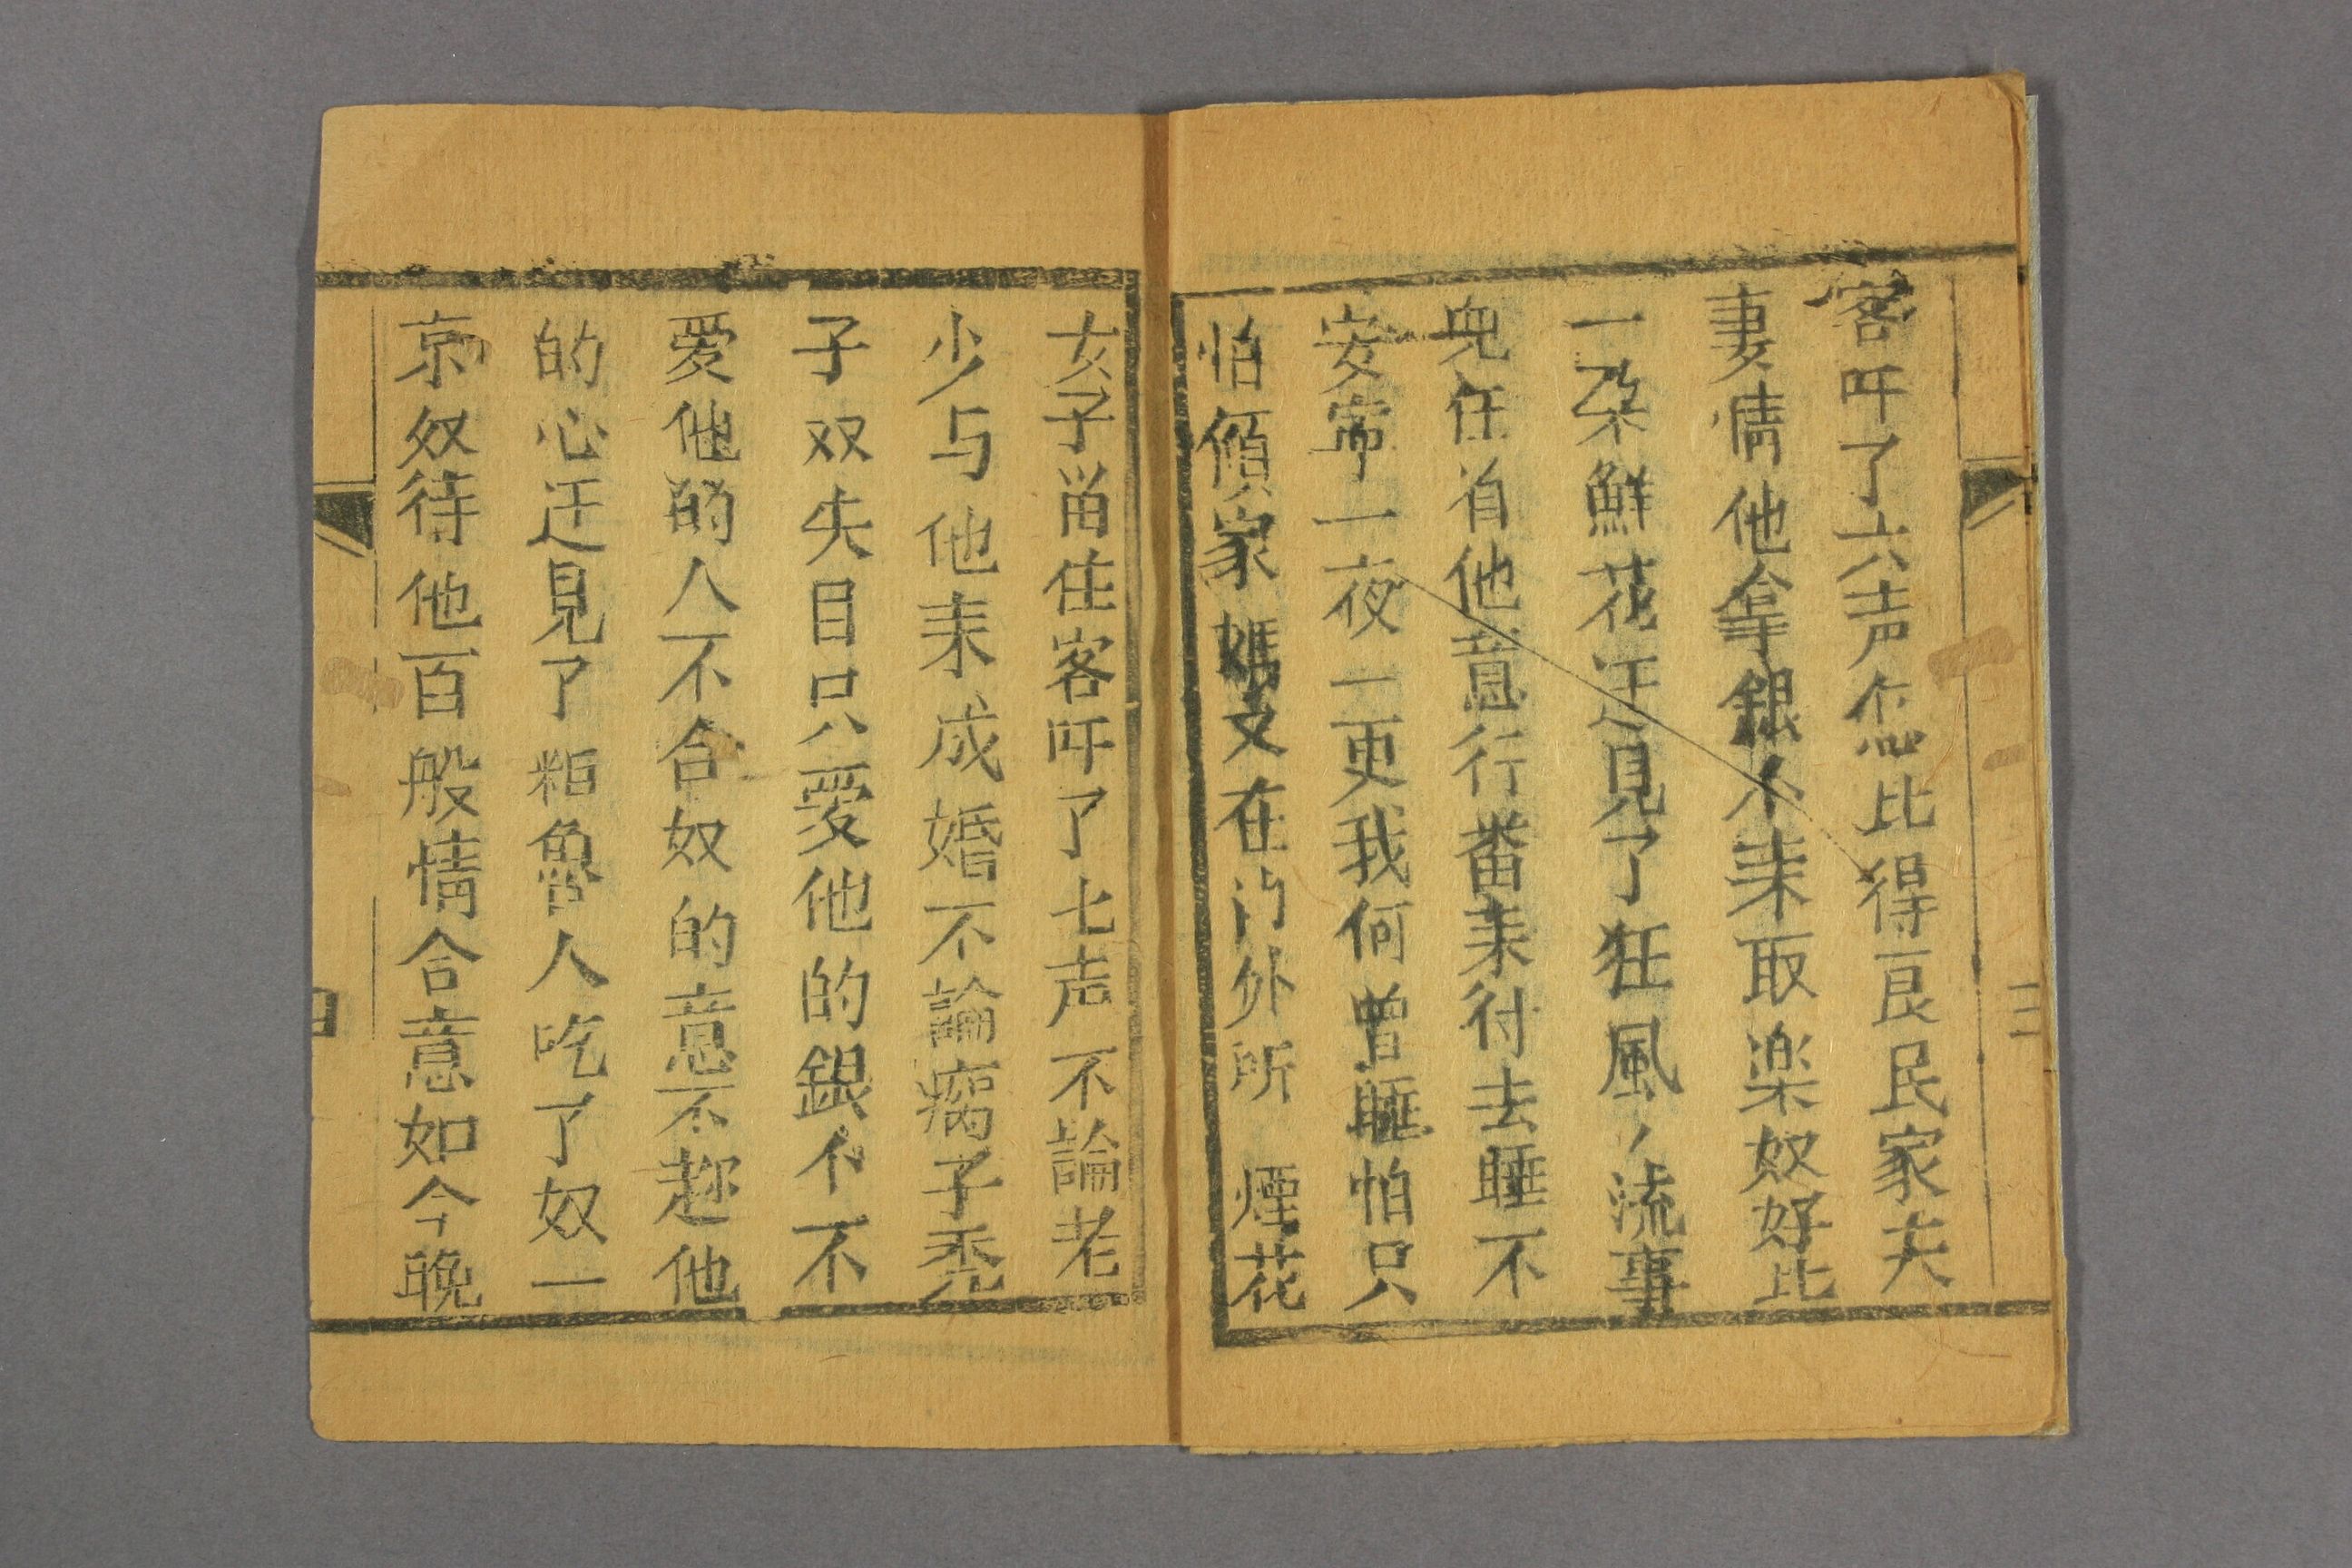 客吁了六声怎比得良民家夫
妻情他拿銀人耒取楽奴好比
一朶鮮花迋見了狂風丿流事
兒任肖他意行番耒付去睡不
安寕一夜一更我何曾睡怕只
怕傾家媽文在门外所 煙花
三
女子畄住客吁了七声不論老
少与他耒成婚不論瘸子秃
子双失目只愛他的銀个不
爱他的人不合奴的意不趂他
的心迋見了粗魯人吃了奴一
京奴待他百般情合意如今晚
四